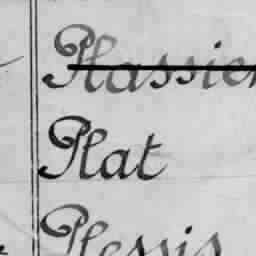 Plassier
Plat
Plessis